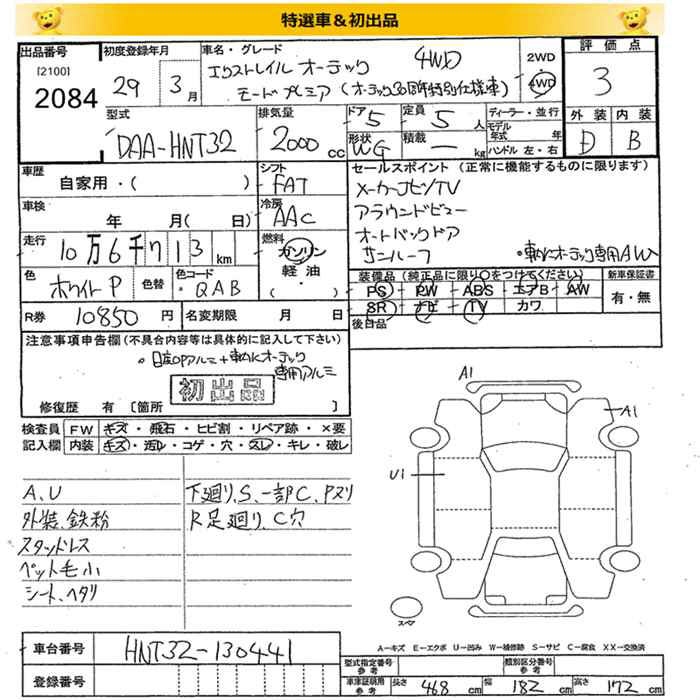 特選車＆初出品
出品番号
[2100]
2084
初度登録年月
29 3月
車名・グレード
4WD
エクストレイル オーテック
モードプレミア (オーテック30周年特別仕様車)
2WD
4WD
評価点
3
外装 内装
D B
型式
DAA-HNT32
排気量
2000cc
ドア 5
定員 5人
形状 WG
積載 — kg
ディーラー・並行
モデル年式 年
ハンドル 左・右
車歴
自家用・( )
シフト
FAT
セールスポイント (正常に機能するものに限ります)
メーカーナビ/TV
アラウンドビュー
オートバックドア
サンルーフ
車検
年 月(日)
冷房
AAC
走行
10万6千713km
燃料
ガソリン
軽油
( )
色
ホワイトP
色替
色コード
QAB
装備品 (純正品に限り○をつけてください)
PS PW ABS エアB AW
SR ナビ TV カワ
新車保証書
有・無
後日品
R券
10850円
名変期限 月 日
注意事項申告欄 (不具合内容等は具体的に記入して下さい)
初出品
修復歴 有 [箇所 ]
検査員記入欄
FW キズ・飛石・ヒビ割・リペア跡・×要
内装 キズ・汚れ・コゲ・穴・スレ・キレ・破レ
A、U
外装、鉄粉
スタッドレス
ペット毛小
シート、ヘタリ
下廻り、S、一部C、Pヌリ
R足廻り、C穴
A1
A1
U1
スペア
A－キズ E－エクボ U－凹み W－補修跡 S－サビ C－腐食 XX－交換済
車台番号
HNT32-130441
登録番号
型式指定番号参考
類別区分番号参考
車庫証明用参考
長さ 468cm 幅 182cm 高さ 172cm